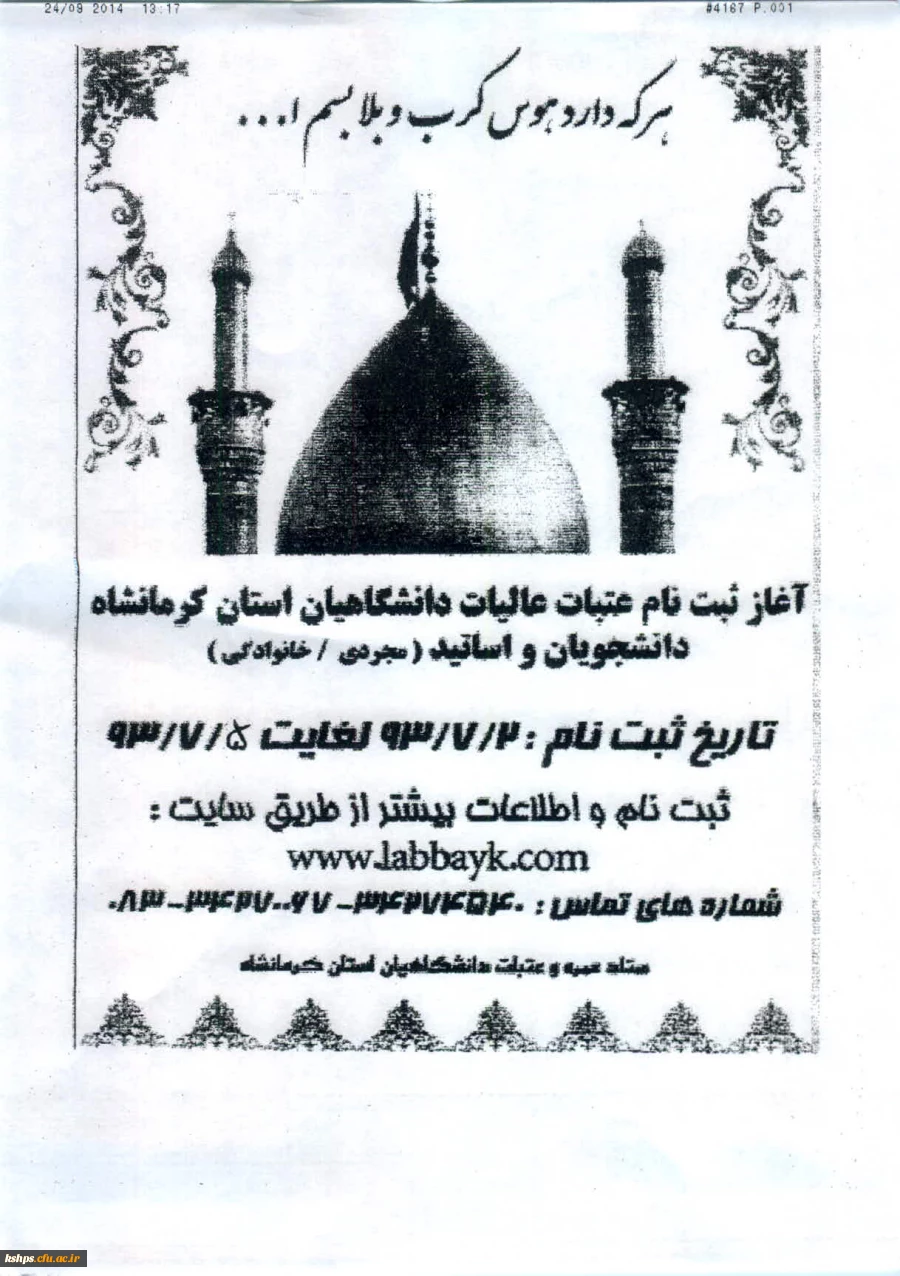 24/09 2014 13:17 #4167 P.001
هرکه دارد هوس کرب و بلا بسم ا...
آغاز ثبت نام عتبات عالیات دانشگاهیان استان کرمانشاه
دانشجویان و اساتید (مجردی / خانوادگی)
تاریخ ثبت نام : ۹۳/۷/۲ لغایت ۹۳/۷/۵
ثبت نام و اطلاعات بیشتر از طریق سایت :
www.labbayk.com
شماره های تماس : ۳۴۲۷۴۵۴۰ - ۳۴۲۷۰۰۶۷ - ۰۸۳
ستاد عمره و عتبات دانشگاهیان استان کرمانشاه
kshps.cfu.ac.ir